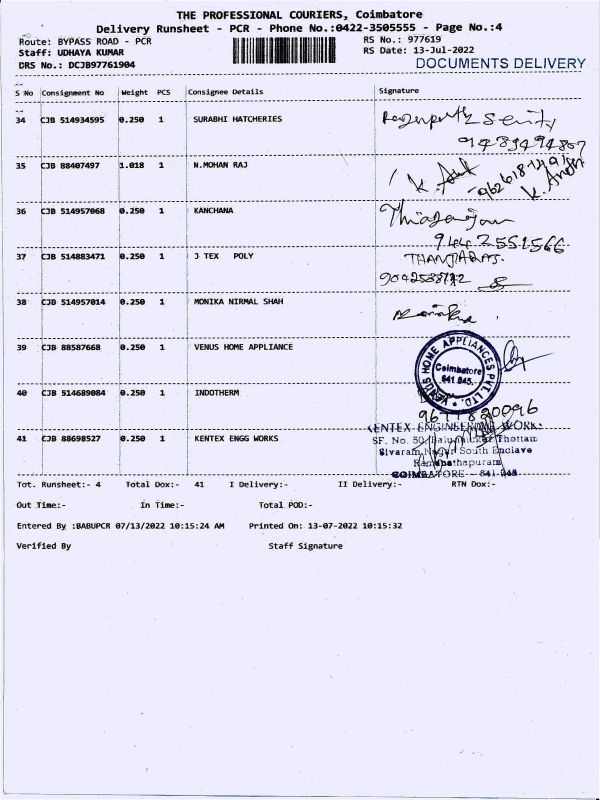 THE PROFESSIONAL COURIERS, Coimbatore
Delivery Runsheet - PCR - Phone No.:0422-3505555 - Page No.:4
Route: BYPASS ROAD - PCR
RS No.: 977619
Staff: UDHAYA KUMAR
RS Date: 13-Jul-2022
DRS No.: DCJB97761904
DOCUMENTS DELIVERY
S No Consignment No Weight PCS Consignee Details Signature
34 CJB 514934595 0.250 1 SURABHI HATCHERIES
35 CJB 88407497 1.018 1 N.MOHAN RAJ
36 CJB 514957068 0.250 1 KANCHANA
9442551566
37 CJB 514883471 0.250 1 J TEX POLY
38 CJB 514957014 0.250 1 MONIKA NIRMAL SHAH
39 CJB 88587668 0.250 1 VENUS HOME APPLIANCE
VENUS HOME APPLIANCES PVT. LTD.
Coimbatore
641 045.
40 CJB 514689084 0.250 1 INDOTHERM
KENTEX ENGINEERING WORK
41 CJB 88698527 0.250 1 KENTEX ENGG WORKS
SF. No. 50 Thottam
Sivaram Nagar South Enclave
Ramanathapuram
COIMBATORE - 641 045
Tot. Runsheet:- 4 Total Dox:- 41 I Delivery:- II Delivery:- RTN Dox:-
Out Time:- In Time:- Total POD:-
Entered By :BABUPCR 07/13/2022 10:15:24 AM Printed On: 13-07-2022 10:15:32
Verified By Staff Signature